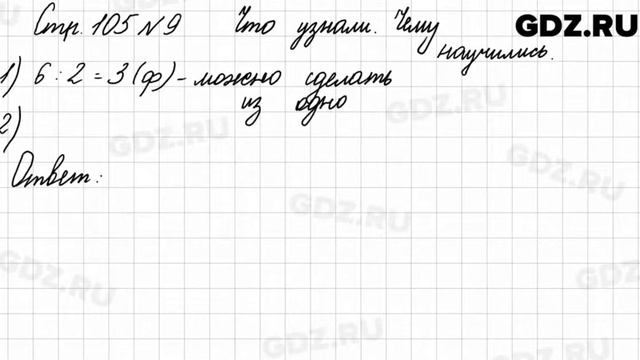 Стр. 105 №9 Что узнали. Чему
научились.
1) 6 : 2 = 3 (ф) - можно сделать
из одно
2)
Ответ:
GDZ.RU
GDZ.RU
GDZ.RU
GDZ.RU
GDZ.RU
GDZ.RU
GDZ.RU
GDZ.RU
GDZ.RU